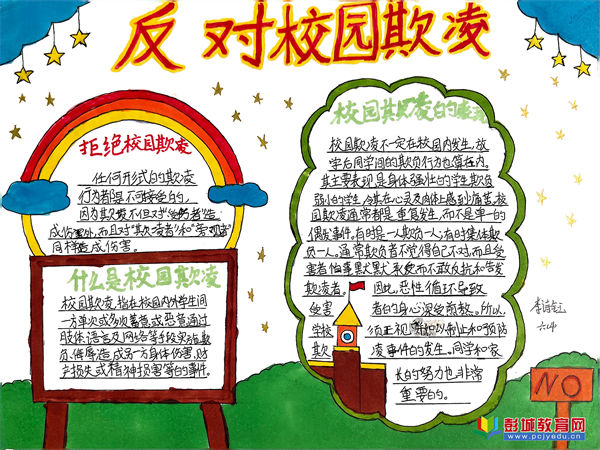 反对校园欺凌
拒绝校园欺凌
任何形式的欺凌
行为者都是不可接受的,
因为其数不但对"受害者"造
成伤害外,而且对"其欺凌者"和"旁观者"
同样造成伤害。
什么是校园欺凌
校园欺凌,指在校园内外学生间
一方单次或多次蓄意或恶意通过
肢体、语言及网络等手段实施欺
负、侮辱造成另一方身体伤害、财
产损失或精神损害等的事件。
校园欺凌的
校园欺凌不一定在校园内发生,放
学后同学间的欺负行为也算在内。
其主要表现是身体强壮的学生欺负
弱小的学生,令其在心灵及肉体上感到痛苦,校
园欺凌通常都是重复发生,而不是单一的
偶发事件。有时是一人欺负一人,有时集体欺
负一人。通常欺负者不觉得自己不对,而且受
害者怕事默默承受而不敢反抗和告发
欺凌者。 因此,恶性循环导致
受害 者的身心深受煎熬。所以,
学校 须正视 制止和预防
欺 凌事件的发生。同学和家
长的努力也非常
重要的。
李
六4
NO
彭城教育网
www.pcjyedu.cn